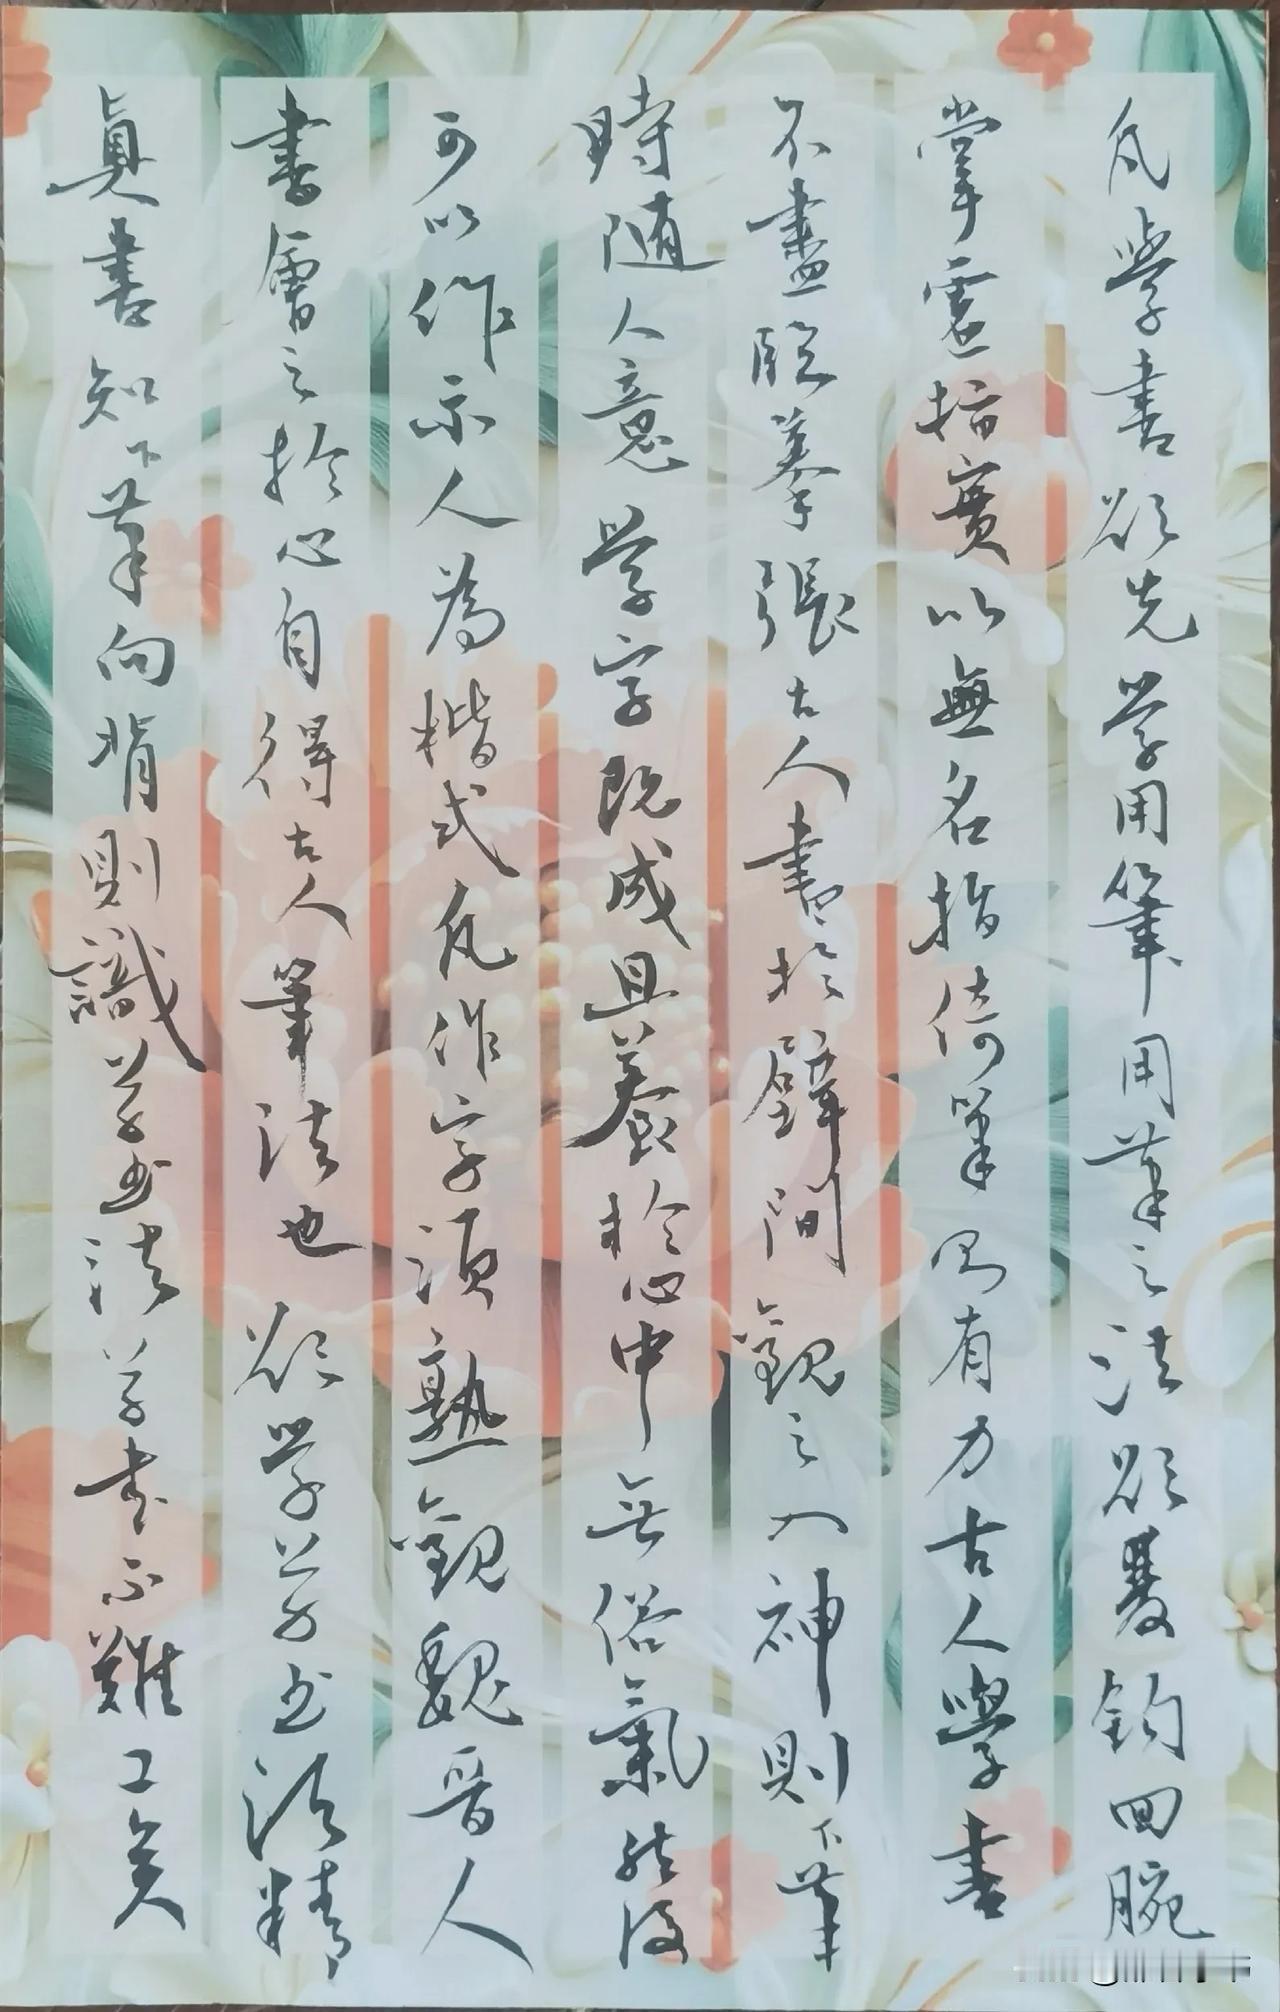 凡學書欲先学用筆用筆之法欲雙鈎回腕
掌虛指實以無名指倚筆則有力古人學書
不盡臨摹張古人書於壁間觀之入神則下筆
時隨人意学字既成且養於心中無俗氣然後
可以作示人為楷式凡作字須熟觀魏晋人
書會之於心自得古人筆法也欲学草书須精
真書知下筆向背則識草书法草書不難工矣